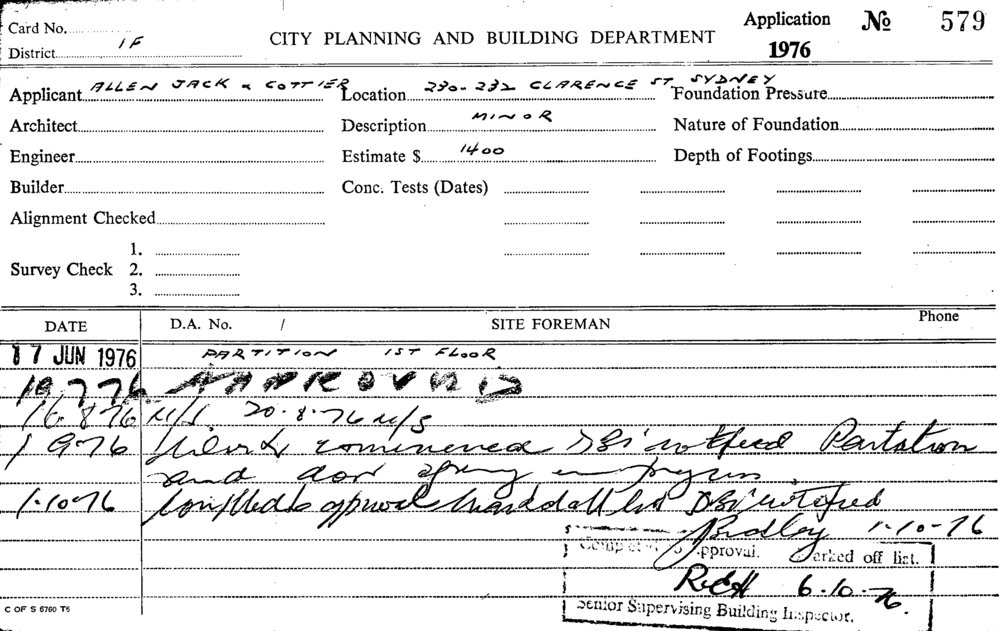 Card No.
District 1F
CITY PLANNING AND BUILDING DEPARTMENT
Application No 579
1976
Applicant ALLEN JACK & COTTIER Location 230-232 CLARENCE ST SYDNEY Foundation Pressure
Architect Description MINOR Nature of Foundation
Engineer Estimate $ 1400 Depth of Footings
Builder Conc. Tests (Dates)
Alignment Checked
1.
Survey Check 2.
3.
DATE D.A. No. / SITE FOREMAN Phone
17 JUN 1976 PARTITION 1ST FLOOR
19.7.76 APPROVED
16.8.76 N/S 20.8.76 N/S
1 9 76 Work commenced SBI notified Partation
and door
1-10-76 approval DBI notified
Bradley 1-10-76
Approval. Marked off list.
6.10.76.
Senior Supervising Building Inspector.
C OF S 6760 T6